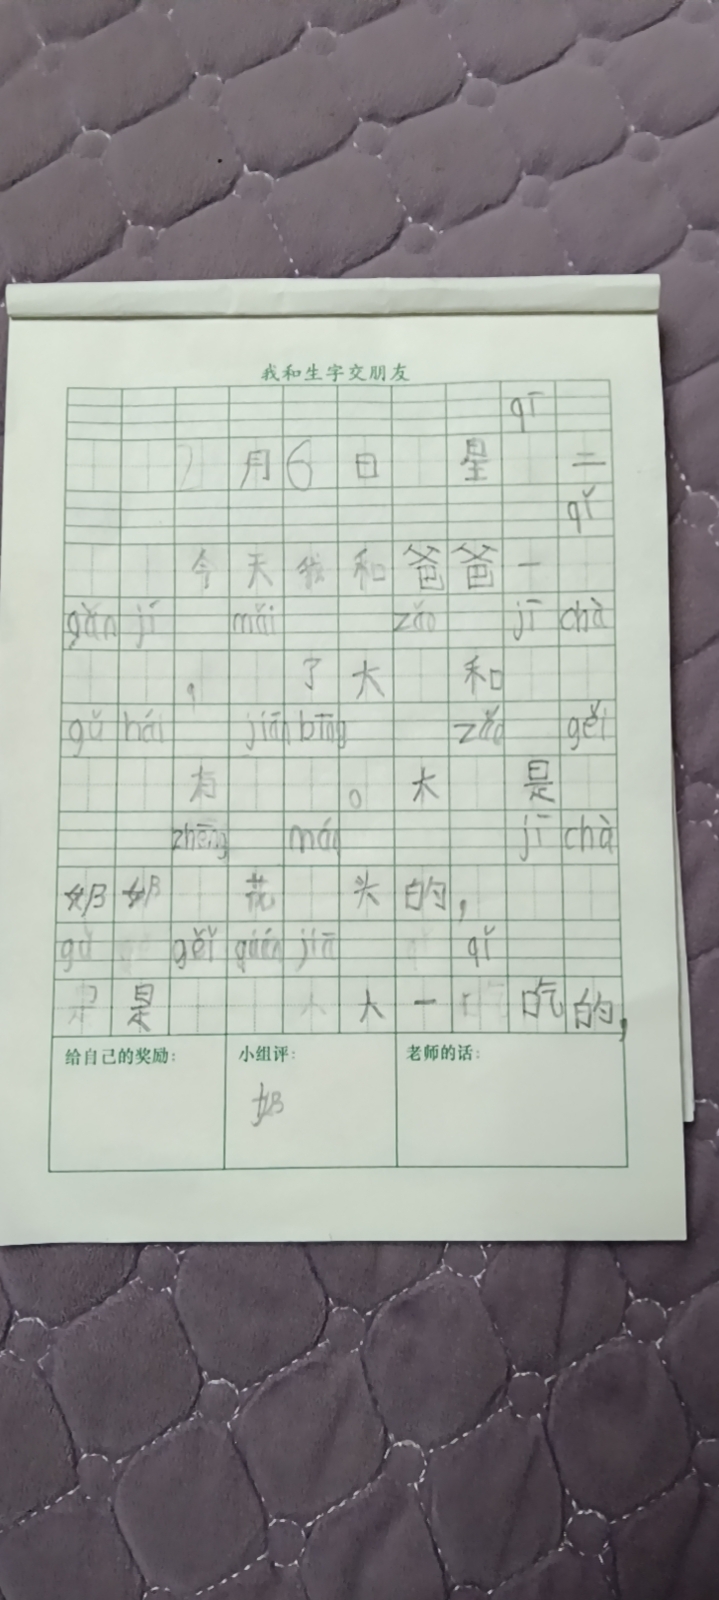 我和生字交朋友
qī
2月6日 星 二
qǐ
今天我和爸爸一
gǎn jí mǎi zǎo jī chà
， 了大 和
gǔ hái jiān bǐng zǎo gěi
有 。木 是
zhēng máo jī chà
奶奶 花 头的，
gǔ gěi guān jiā qǐ
是 大一 吃的，
给自己的奖励：
小组评：
老师的话：